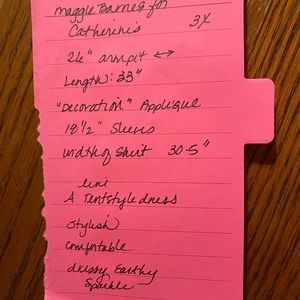 Maggie Barnes for
Catherine's 3X
26" armpit ↔
Length: 33"
"Decoration" Applique
18 1/2" Sleeves
width of Shirt 30.5"
A Tentstyle dress
stylish
comfortable
dressy Earthy
Sparkle